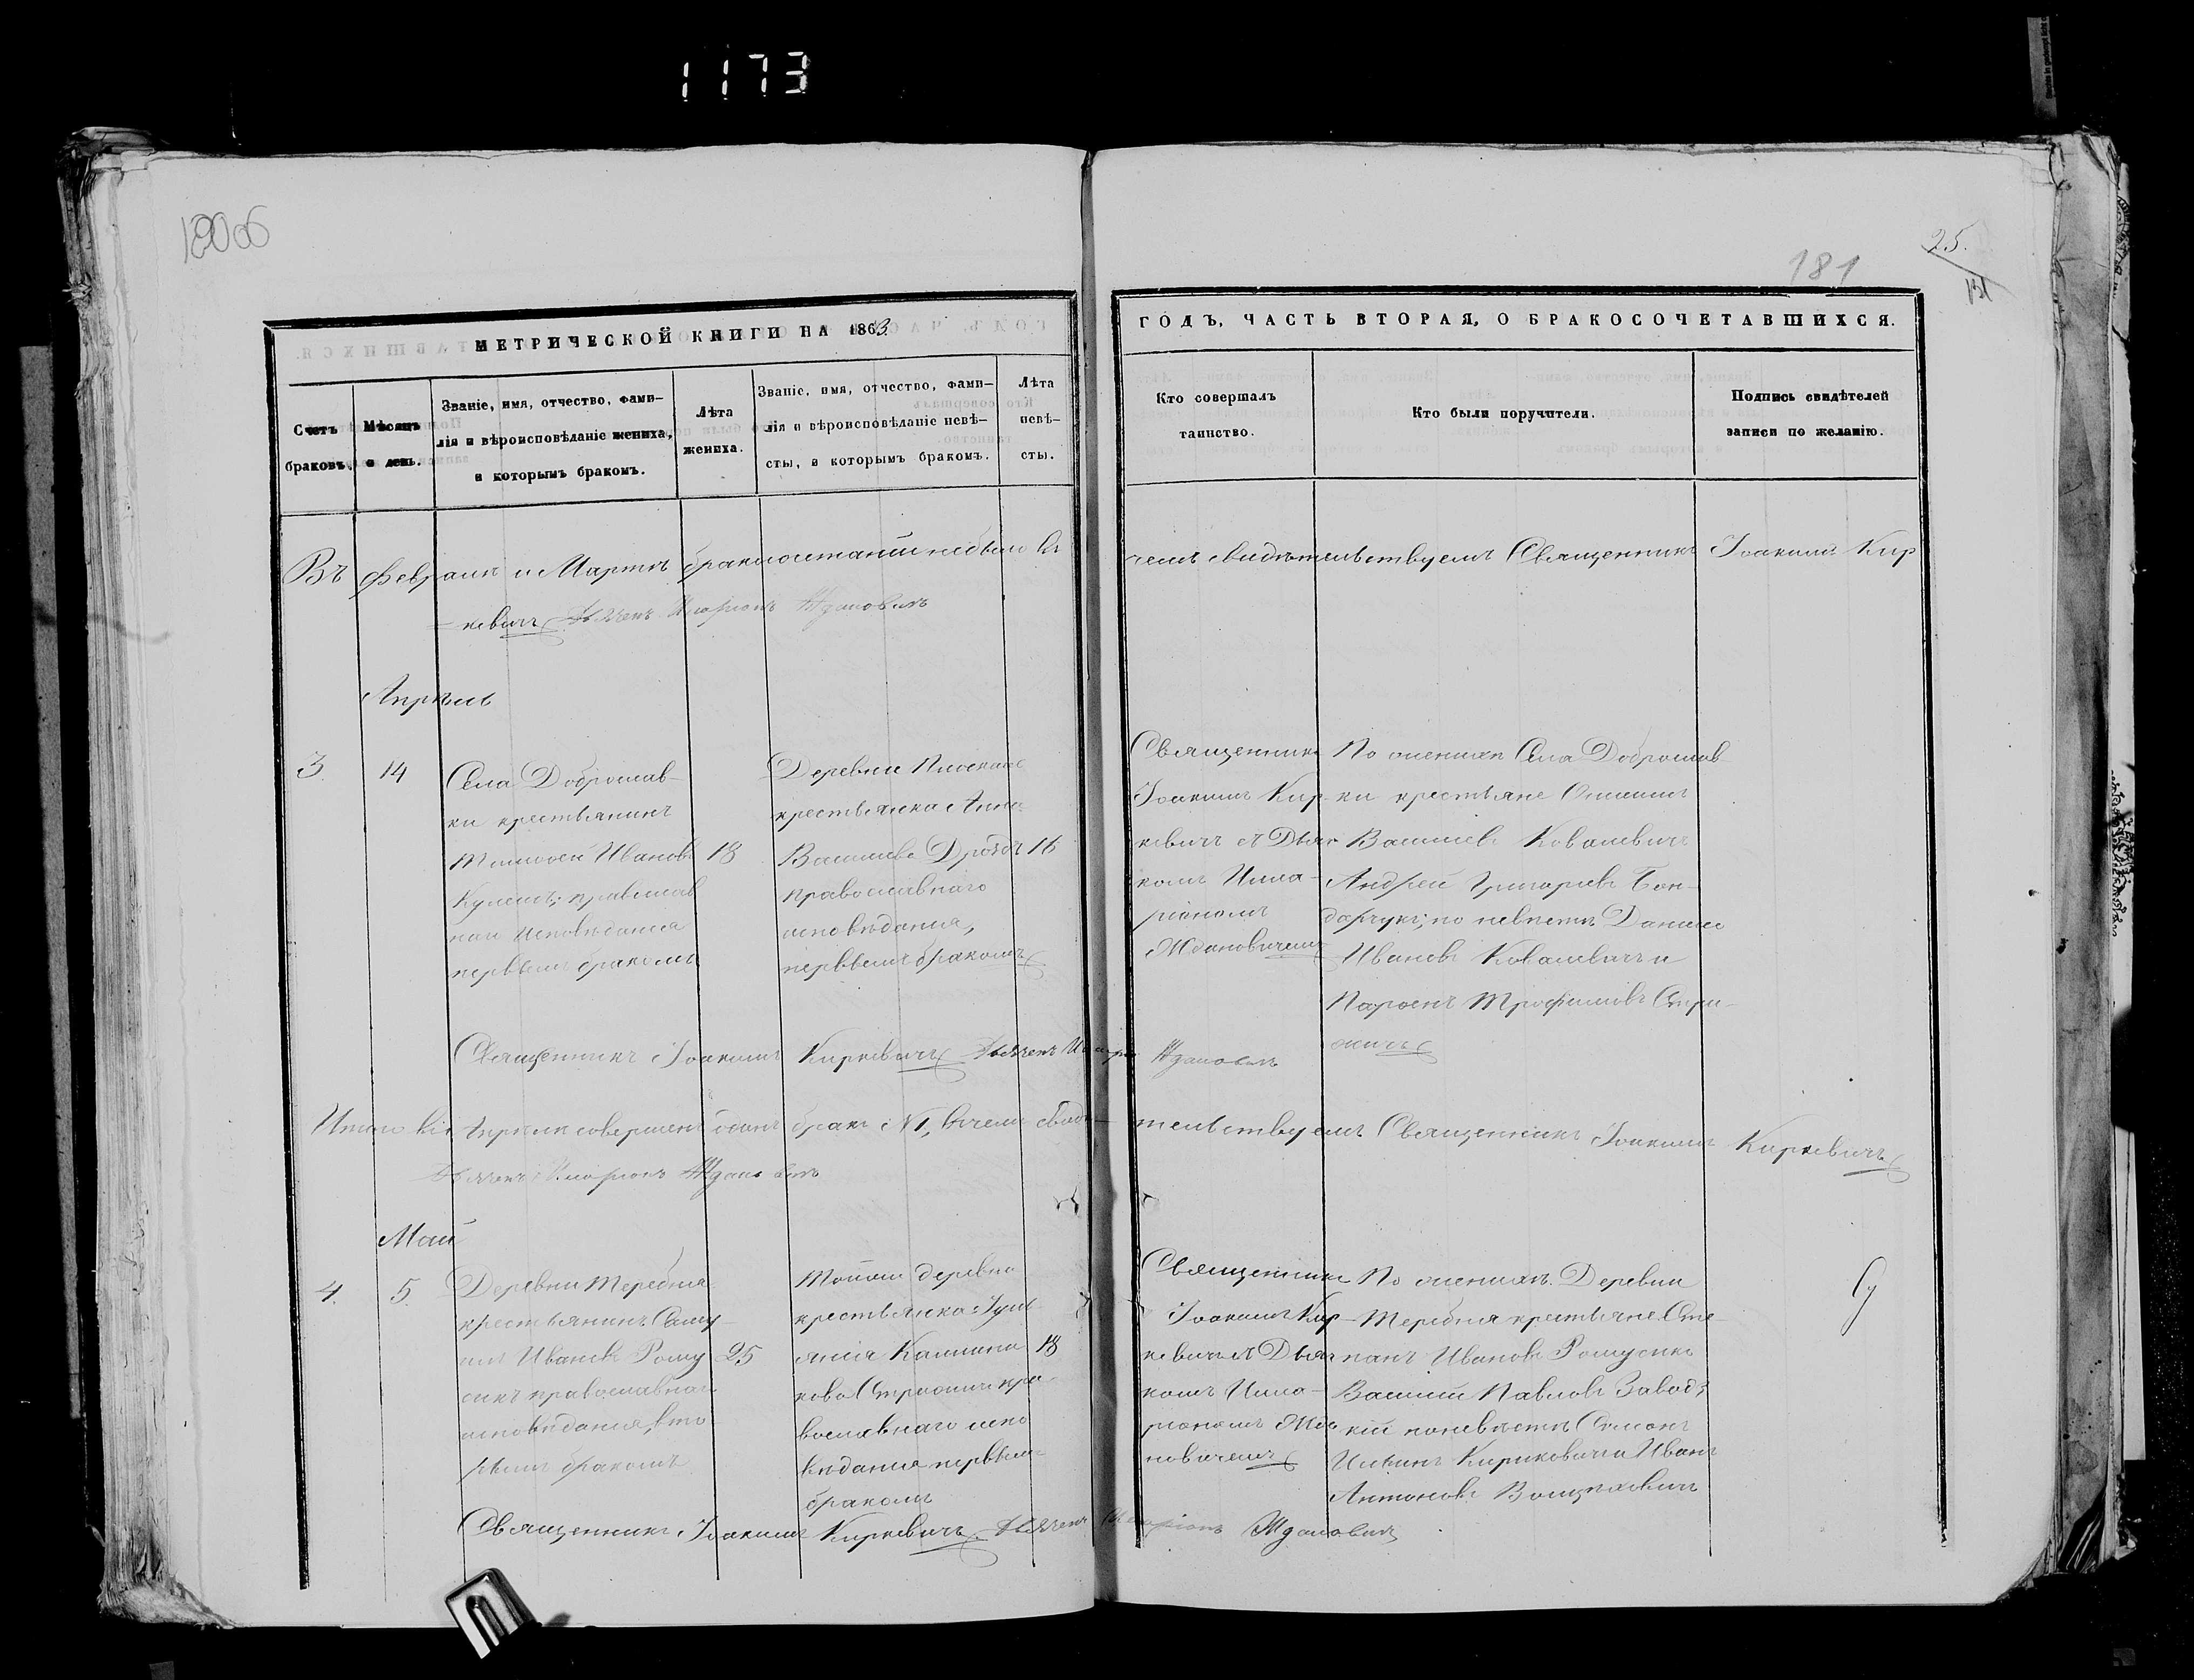 1173
180об
181
25.
МЕТРИЧЕСКОЙ КНИГИ НА 1863
ГОДЪ, ЧАСТЬ ВТОРАЯ, О БРАКОСОЧЕТАВШИХСЯ.
Счетъ браковъ.
Мѣсяцъ и день.
Званіе, имя, отчество, фами-
лія и вѣроисповѣданіе жениха,
и которымъ бракомъ.
Лѣта
жениха.
Званіе, имя, отчество, фами-
лія и вѣроисповѣданіе невѣ-
сты, и которымъ бракомъ.
Лѣта
невѣ-
сты.
Кто совершалъ
таинство.
Кто были поручители.
Подпись свидѣтелей
записи по желанію.
Въ Февралѣ и Мартѣ бракосочетаній небыло въ чемъ свидѣтельствуемъ Священникъ Іоакимъ Кир
кевичъ Дьячекъ Иларіонъ Ждановичъ
Апрѣль
3.
14
Села Доброслав-
ки крестьянинъ
Тимофей Ивановъ
Кулешъ; православ
наго исповѣданія
первымъ бракомъ
18
Деревни
крестьянка Анна
Васильева Дроздъ
православнаго
исповѣданія,
первымъ бракомъ
16
Священникъ
Іоакимъ Кир
кевичъ съ Дьяч
комъ Илла-
ріономъ
Ждановичемъ
По женихѣ Села Доброслав-
ки крестьяне
Васильевъ Ковалевичъ
Андрей Григорьевъ Бон-
дарчукъ; по невѣстѣ Данило
Ивановъ Ковалевичъ и
Парфенъ Трофимовъ Стри-
Священникъ Іоакимъ Киркевичъ Дьячекъ Иларіонъ Ждановичъ
Итого въ Апрѣлѣ совершенъ одинъ бракъ №1, въ чемъ свидѣ-
тельствуемъ Священникъ Іоакимъ Киркевичъ
Дьячекъ Иларіонъ Ждановичъ
Май
4.
5.
Деревни Теребня
крестьянинъ Саму-
илъ Ивановъ
православнаго
исповѣданія, вто-
рымъ бракомъ
25
Тойже деревни
крестьянка Іулі-
янія Калинни
кова правос
вославнаго испо
вѣданія первымъ
бракомъ
18
Священникъ
Іоакимъ Кир-
кевичъ съ Дьяч
комъ Илла-
ріономъ Жда
новичемъ
По женихѣ Деревни
Теребня крестьяне Сте-
панъ Ивановъ
Василій Павловъ
по невѣстѣ
Кириковичъ и Иванъ
Антоновъ
Священникъ Іоакимъ Киркевичъ Дьячекъ Иларіонъ Ждановичъ